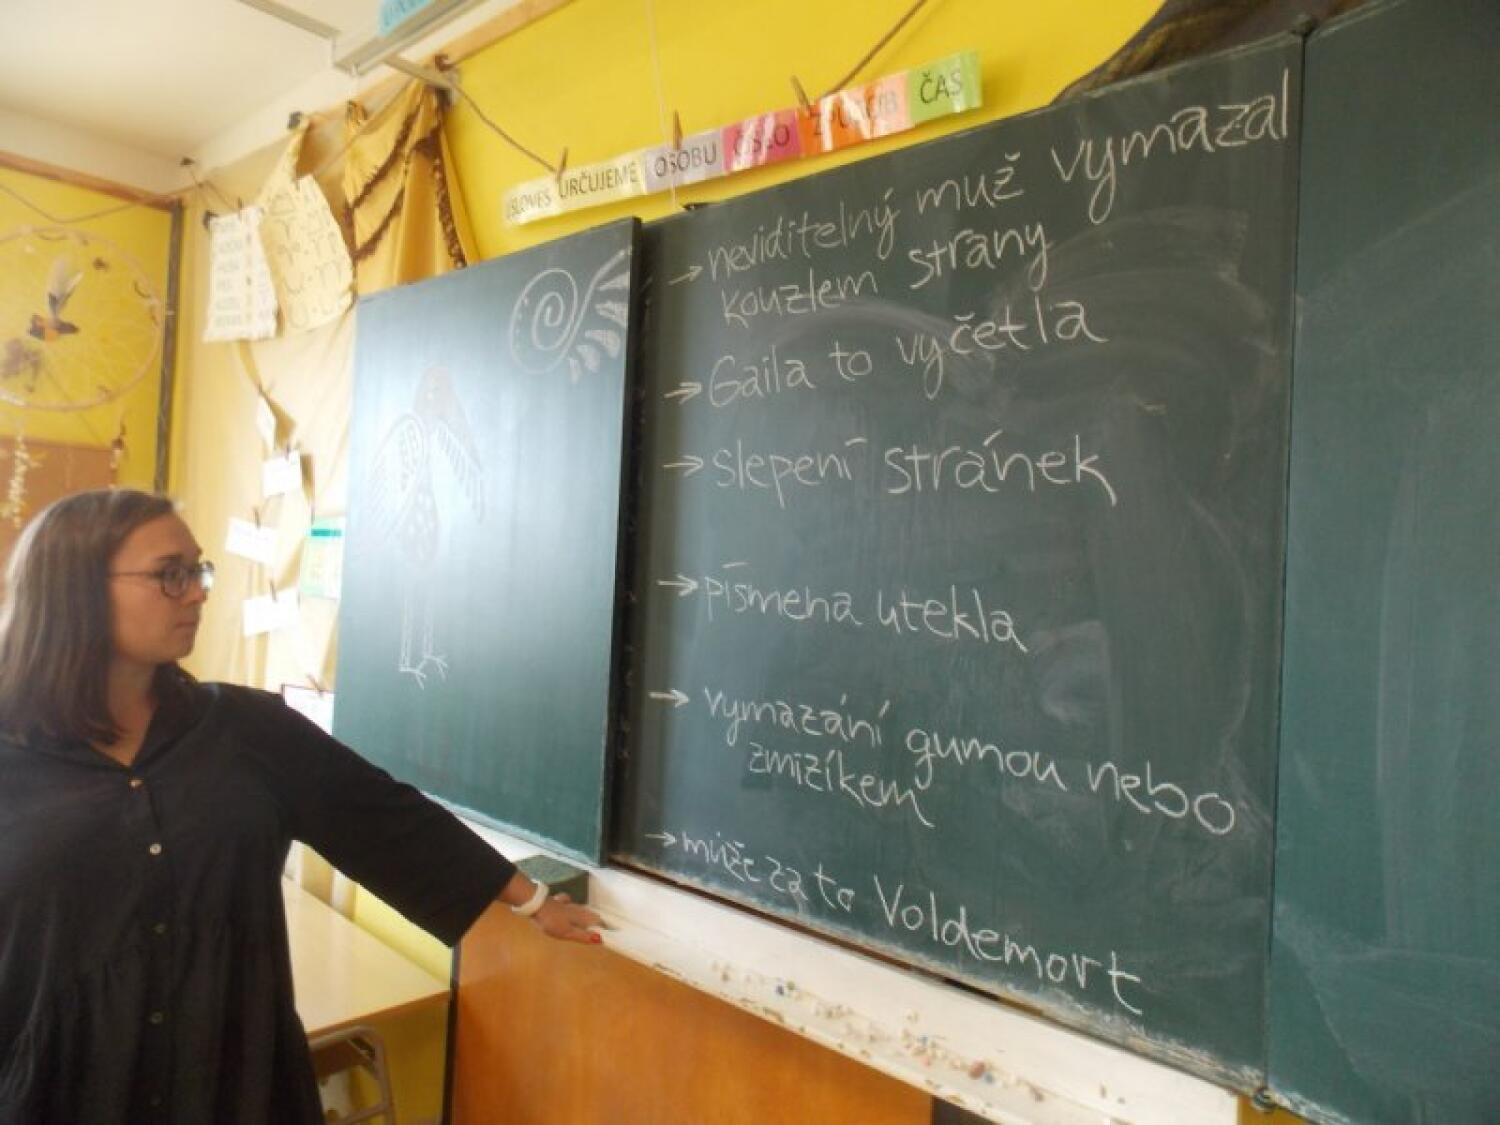 U SLOVES URČUJEME OSOBU ČÍSLO ZPŮSOB ČAS
→ neviditelný muž vymazal
kouzlem strany
→ Gaila to vyčetla
→ slepení stránek
→ písmena utekla
→ vymazání gumou nebo
zmizíkem
→ může za to Voldemort